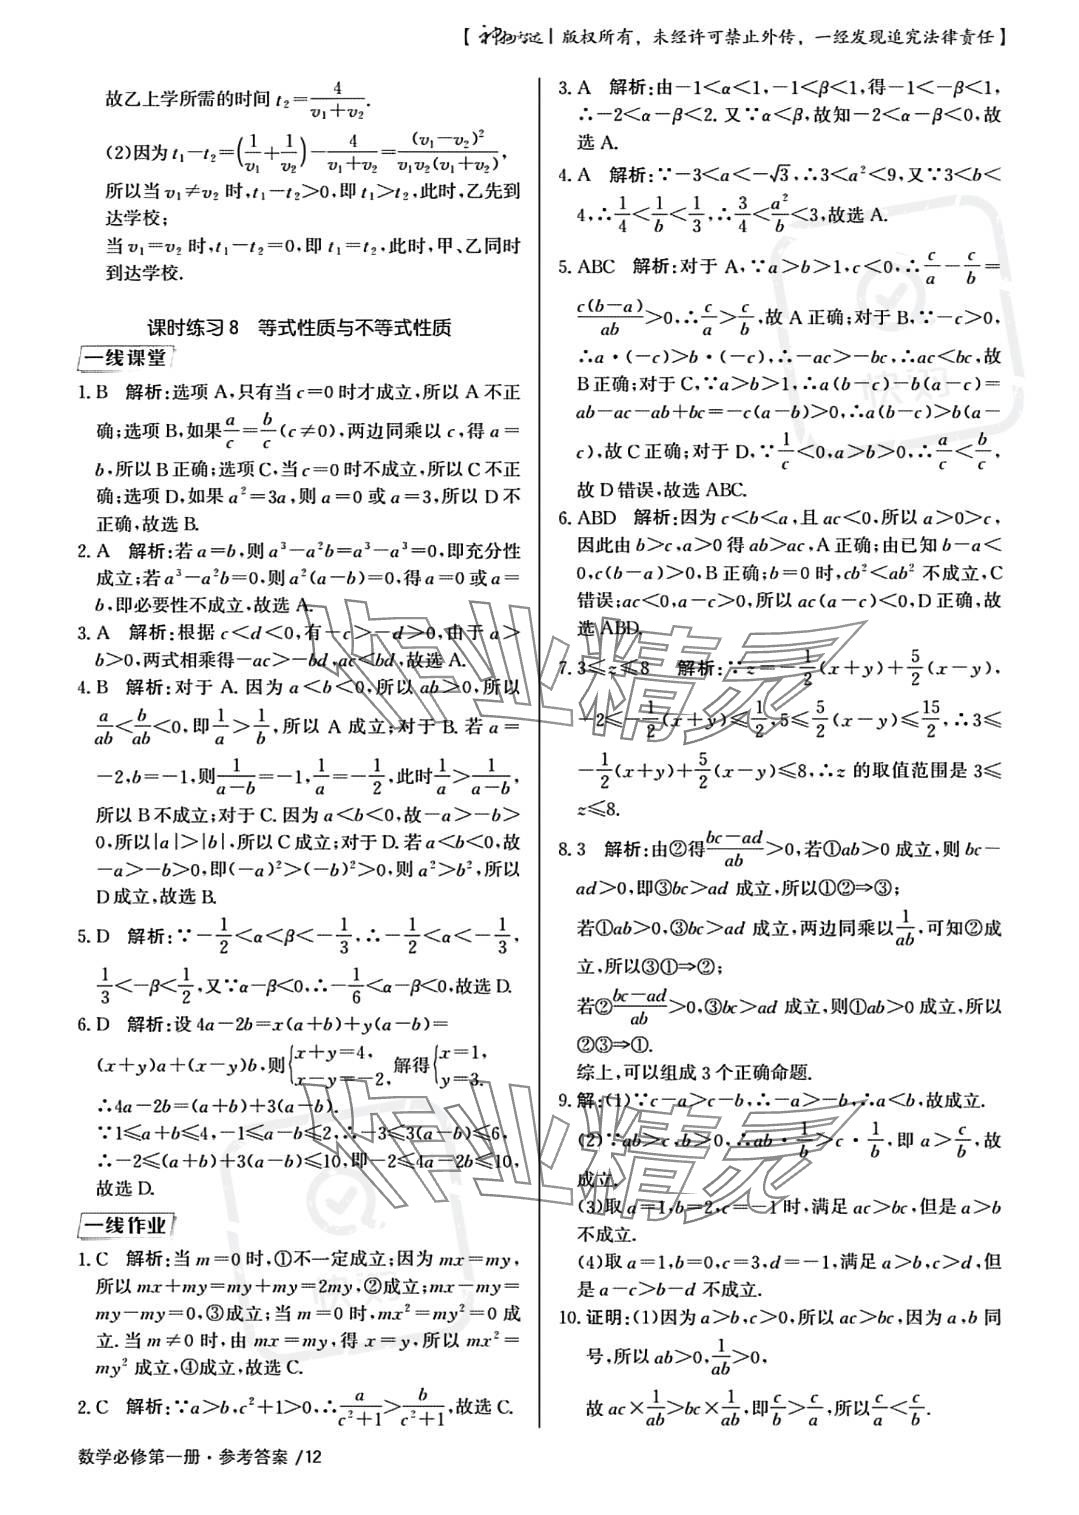 【神州智达｜版权所有，未经许可禁止外传，一经发现追究法律责任】
故乙上学所需的时间 t₂=4/(v₁+v₂).
(2)因为 t₁-t₂=(1/v₁+1/v₂)-4/(v₁+v₂)=(v₁-v₂)²/(v₁v₂(v₁+v₂)),
所以当 v₁≠v₂ 时,t₁-t₂>0,即 t₁>t₂,此时,乙先到
达学校;
当 v₁=v₂ 时,t₁-t₂=0,即 t₁=t₂,此时,甲、乙同时
到达学校.
课时练习8 等式性质与不等式性质
一线课堂
1. B 解析:选项 A,只有当 c=0 时才成立,所以 A 不正
确;选项 B,如果 a/c=b/c(c≠0),两边同乘以 c,得 a=
b,所以 B 正确;选项 C,当 c=0 时不成立,所以 C 不正
确;选项 D,如果 a²=3a,则 a=0 或 a=3,所以 D 不
正确,故选 B.
2. A 解析:若 a=b,则 a³-a²b=a³-a³=0,即充分性
成立;若 a³-a²b=0,则 a²(a-b)=0,得 a=0 或 a=
b,即必要性不成立,故选 A.
3. A 解析:根据 c<d<0,有-c>-d>0,由于 a>
b>0,两式相乘得-ac>-bd,ac<bd,故选 A.
4. B 解析:对于 A.因为 a<b<0,所以 ab>0,所以
a/ab<b/ab<0,即 1/a>1/b,所以 A 成立;对于 B.若 a=
-2,b=-1,则 1/(a-b)=-1,1/a=-1/2,此时 1/a>1/(a-b),
所以 B 不成立;对于 C.因为 a<b<0,故-a>-b>
0,所以|a|>|b|,所以 C 成立;对于 D.若 a<b<0,故
-a>-b>0,即(-a)²>(-b)²>0,则 a²>b²,所以
D 成立,故选 B.
5. D 解析:∵-1/2<α<β<-1/3,∴-1/2<α<-1/3,
1/3<-β<1/2,又∵α-β<0,∴-1/6<α-β<0,故选 D.
6. D 解析:设 4a-2b=x(a+b)+y(a-b)=
(x+y)a+(x-y)b,则{x+y=4, x-y=-2, 解得{x=1, y=3.
∴4a-2b=(a+b)+3(a-b).
∵1≤a+b≤4,-1≤a-b≤2,∴-3≤3(a-b)≤6,
∴-2≤(a+b)+3(a-b)≤10,即-2≤4a-2b≤10,
故选 D.
一线作业
1. C 解析:当 m=0 时,①不一定成立;因为 mx=my,
所以 mx+my=my+my=2my,②成立;mx-my=
my-my=0,③成立;当 m=0 时,mx²=my²=0 成
立.当 m≠0 时,由 mx=my,得 x=y,所以 mx²=
my² 成立,④成立,故选 C.
2. C 解析:∵a>b,c²+1>0,∴a/(c²+1)>b/(c²+1),故选 C.
3. A 解析:由-1<α<1,-1<β<1,得-1<-β<1,
∴-2<α-β<2.又∵α<β,故知-2<α-β<0,故
选 A.
4. A 解析:∵-3<a<-√3,∴3<a²<9,又∵3<b<
4,∴1/4<1/b<1/3,∴3/4<a²/b<3,故选 A.
5. ABC 解析:对于 A,∵a>b>1,c<0,∴c/a-c/b=
c(b-a)/ab>0,∴c/a>c/b,故 A 正确;对于 B,∵-c>0,
∴a·(-c)>b·(-c),∴-ac>-bc,∴ac<bc,故
B 正确;对于 C,∵a>b>1,∴a(b-c)-b(a-c)=
ab-ac-ab+bc=-c(a-b)>0,∴a(b-c)>b(a-
c),故 C 正确;对于 D,∵1/c<0,a>b>0,∴a/c<b/c,
故 D 错误,故选 ABC.
6. ABD 解析:因为 c<b<a,且 ac<0,所以 a>0>c,
因此由 b>c,a>0 得 ab>ac,A 正确;由已知 b-a<
0,c(b-a)>0,B 正确;b=0 时,cb²<ab² 不成立,C
错误;ac<0,a-c>0,所以 ac(a-c)<0,D 正确,故
选 ABD.
7. 3≤z≤8 解析:∵z=-1/2(x+y)+5/2(x-y),
-2≤-1/2(x+y)≤1/2,5≤5/2(x-y)≤15/2,∴3≤
-1/2(x+y)+5/2(x-y)≤8,∴z 的取值范围是 3≤
z≤8.
8. 3 解析:由②得(bc-ad)/ab>0,若①ab>0 成立,则 bc-
ad>0,即③bc>ad 成立,所以①②⇒③;
若①ab>0,③bc>ad 成立,两边同乘以 1/ab,可知②成
立,所以③①⇒②;
若②(bc-ad)/ab>0,③bc>ad 成立,则①ab>0 成立,所以
②③⇒①.
综上,可以组成 3 个正确命题.
9. 解:(1)∵c-a>c-b,∴-a>-b,∴a<b,故成立.
(2)∵ab>c,b>0,∴ab·1/b>c·1/b,即 a>c/b,故
成立.
(3)取 a=1,b=2,c=-1 时,满足 ac>bc,但是 a>b
不成立.
(4)取 a=1,b=0,c=3,d=-1,满足 a>b,c>d,但
是 a-c>b-d 不成立.
10. 证明:(1)因为 a>b,c>0,所以 ac>bc,因为 a,b 同
号,所以 ab>0,1/ab>0,
故 ac×1/ab>bc×1/ab,即 c/b>c/a,所以 c/a<c/b.
数学必修第一册·参考答案 /12
作业精灵
作业精灵
快对
快对